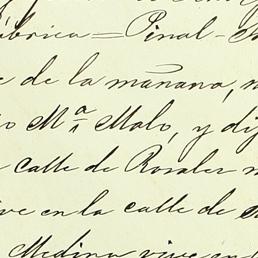 ábrica = Penal -
de la mañana,
Mª Malo, y di
calle de Rosales
ive en la calle de
Medina vive en